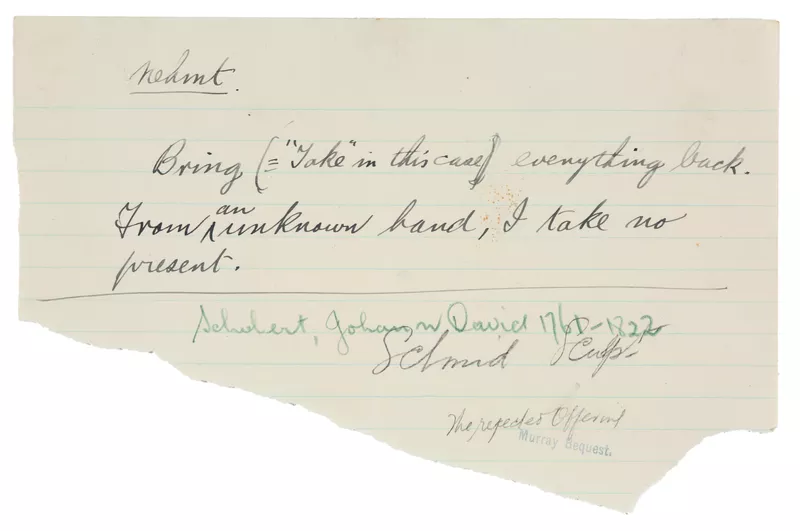 nehmt.
Bring (= "Take" in this case) everything back.
From an unknown hand, I take no
present.
Schubert, Johann David 1761-1822
Schmid Sculp.
The rejected Offering
Murray Bequest.